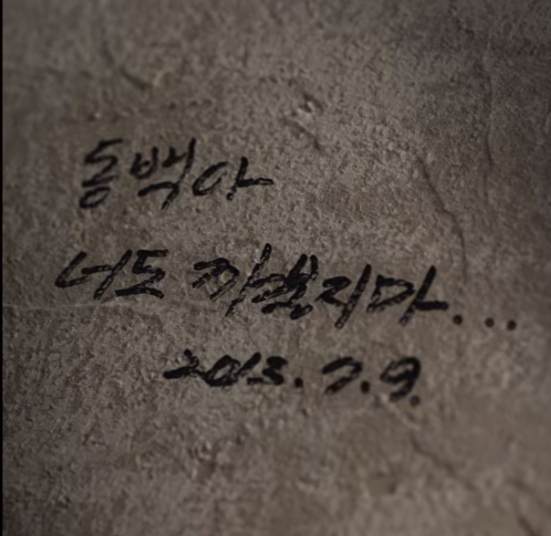 동백아
너도 까불지마...
2013. 7. 9.